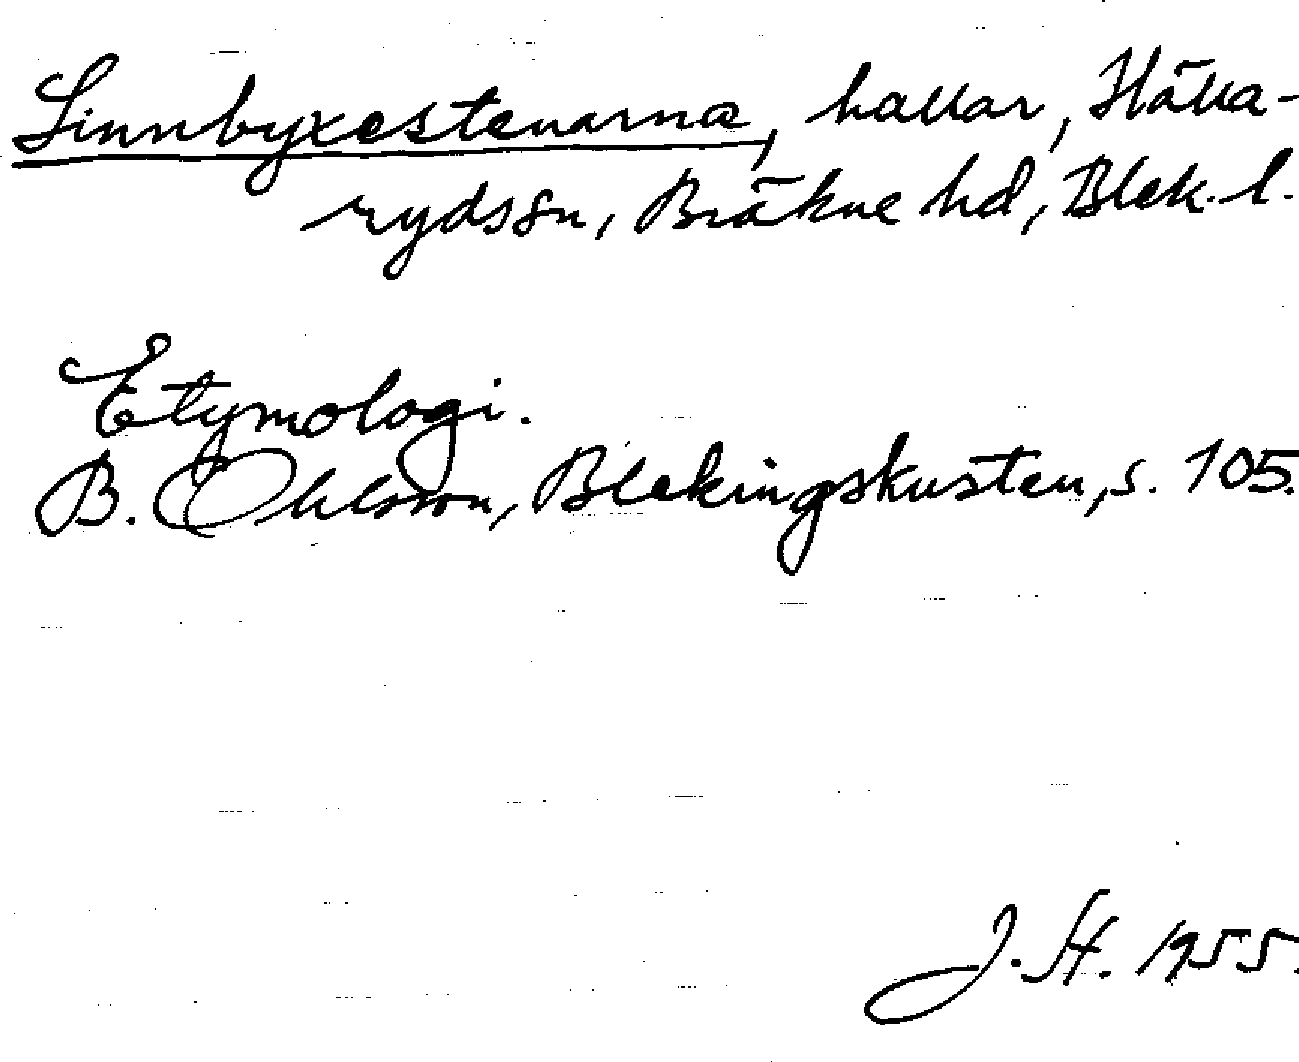 Linnbyxestenarna, hallar, Hälla-
rydssn, Bräkne hd, Blek. l.
Etymologi.
B. Ohlsson, Blekingskusten, s. 105.
J. H. 1955.